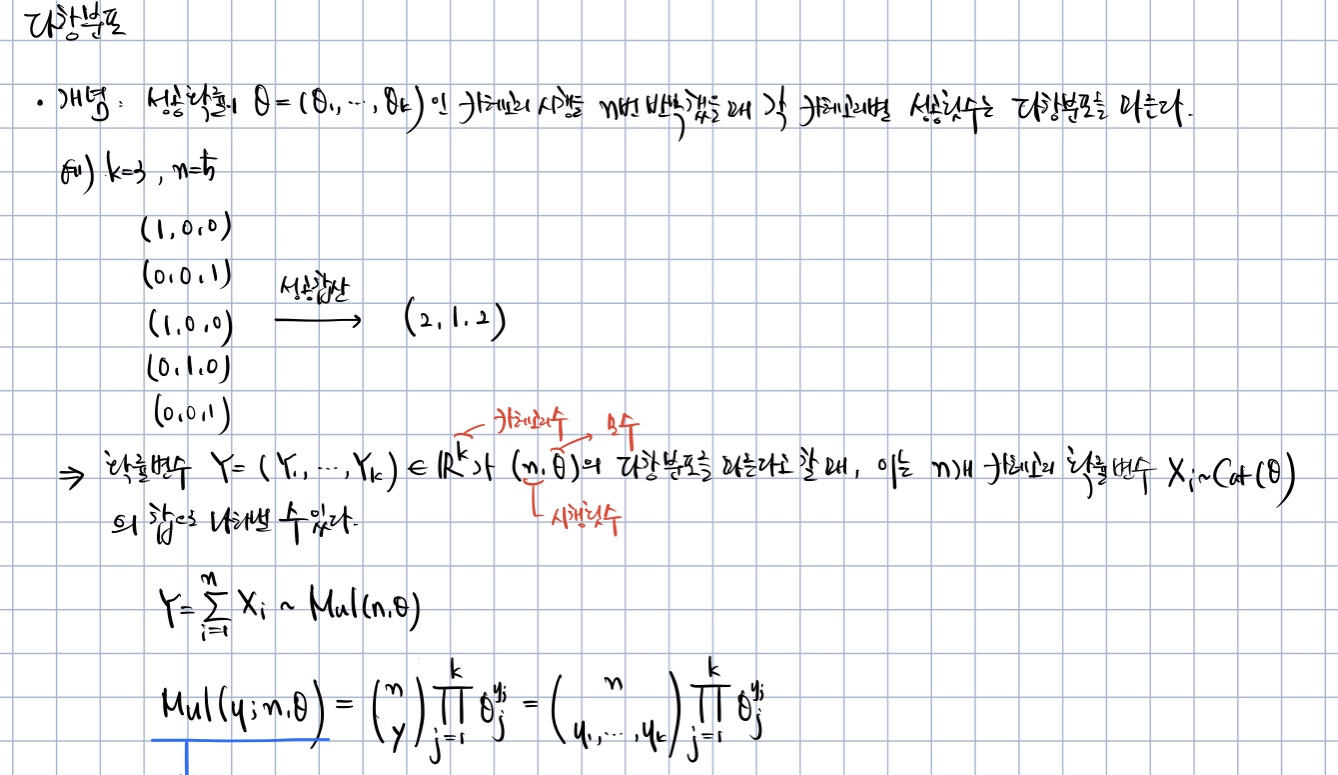 다항분포
• 개념: 성공확률이 θ = (θ₁, ⋯, θₖ) 인 카테고리 시행을 n번 반복했을 때 각 카테고리별 성공횟수는 다항분포를 따른다.
예) k=3, n=5
(1,0,0)
(0,0,1)
(1,0,0)
(0,1,0)
(0,0,1)
성공합산
⟶ (2,1,2)
카테고리수
모수
⇒ 확률변수 Y = (Y₁, ⋯, Yₖ) ∈ ℝᵏ가 (n,θ)의 다항분포를 따른다고 할 때, 이는 n개 카테고리 확률변수 Xᵢ~Cat(θ)
시행횟수
의 합으로 나타낼 수 있다.
Y = ∑ᵢ₌₁ⁿ Xᵢ ~ Mul(n,θ)
Mul(y;n,θ) = (n y) ∏ⱼ₌₁ᵏ θⱼ^yⱼ = (n y₁,⋯,yₖ) ∏ⱼ₌₁ᵏ θⱼ^yⱼ